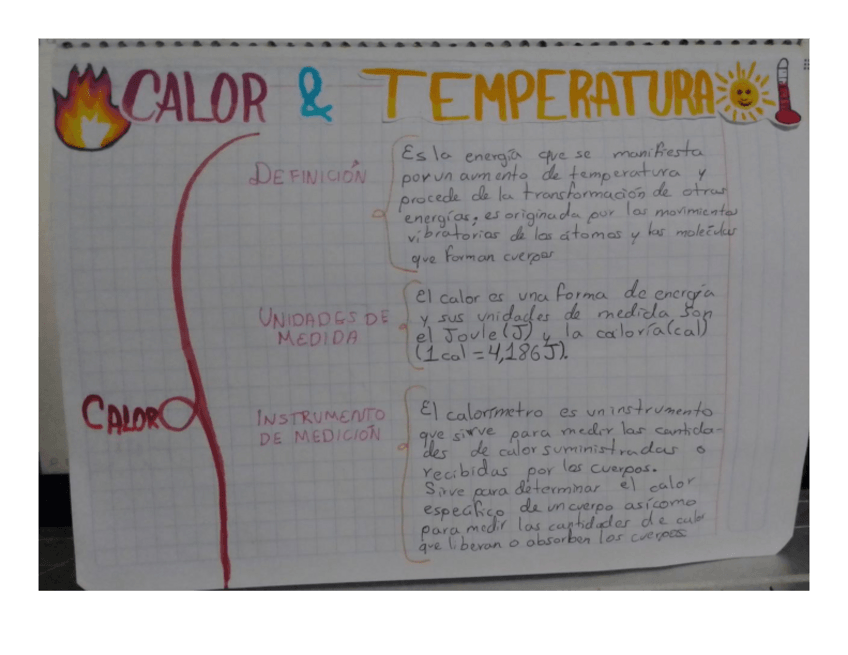 CALOR & TEMPERATURA
DEFINICIÓN
Es la energía que se manifiesta
por un aumento de temperatura y
procede de la transformación de otras
energías, es originada por los movimientos
vibratorios de los átomos y las moleculas
que forman cuerpos
UNIDADES DE
MEDIDA
El calor es una forma de energía
y sus unidades de medida son
el Joule (J) y la caloría (cal)
(1 cal = 4,186 J).
CALOR
INSTRUMENTO
DE MEDICIÓN
El calorímetro es un instrumento
que sirve para medir las cantida-
des de calor suministradas o
recibidas por los cuerpos.
Sirve para determinar el calor
específico de un cuerpo así como
para medir las cantidades de calor
que liberan o absorben los cuerpos